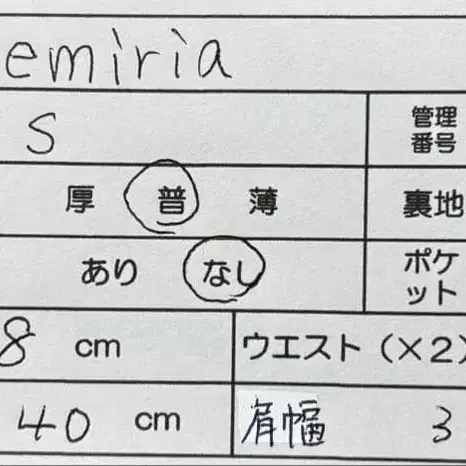 emiria
S 管理番号
厚 普 薄 裏地
あり なし ポケット
8 cm ウエスト (×2)
40 cm 肩幅 3